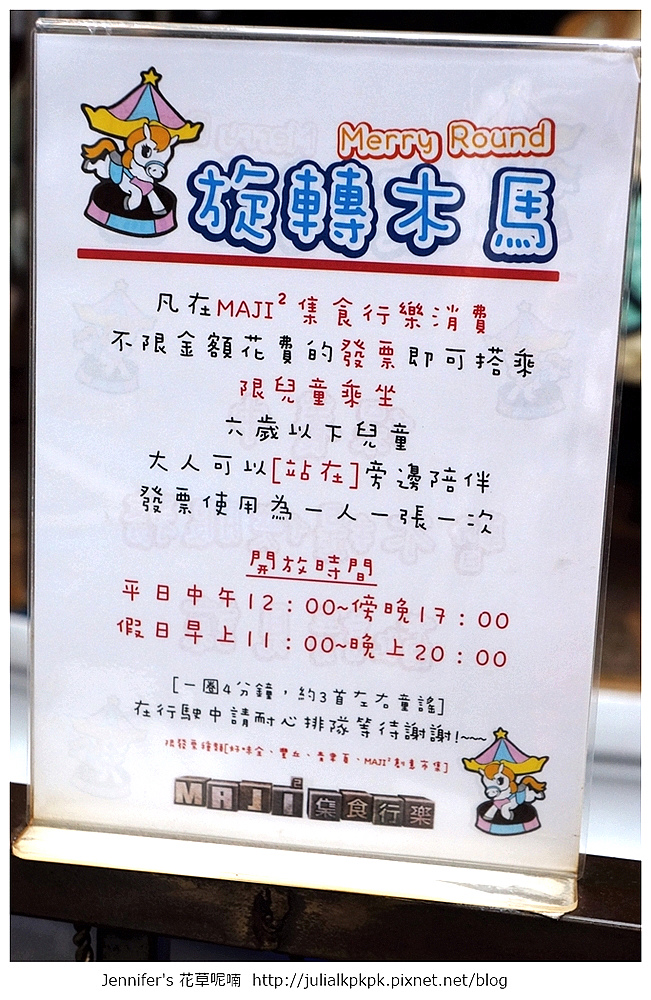 Merry Round
旋轉木馬
凡在MAJI²集食行樂消費
不限金額花費的發票即可搭乘
限兒童乘坐
六歲以下兒童
大人可以[站在]旁邊陪伴
發票使用為一人一張一次
開放時間
平日中午12:00~傍晚17:00
假日早上11:00~晚上20:00
[一圈4分鐘,約3首左右童謠]
在行駛中請耐心排隊等待謝謝!~~~
MAJI²創意市集]
MAJI²集食行樂
Jennifer's 花草呢喃 http://julialkpkpk.pixnet.net/blog